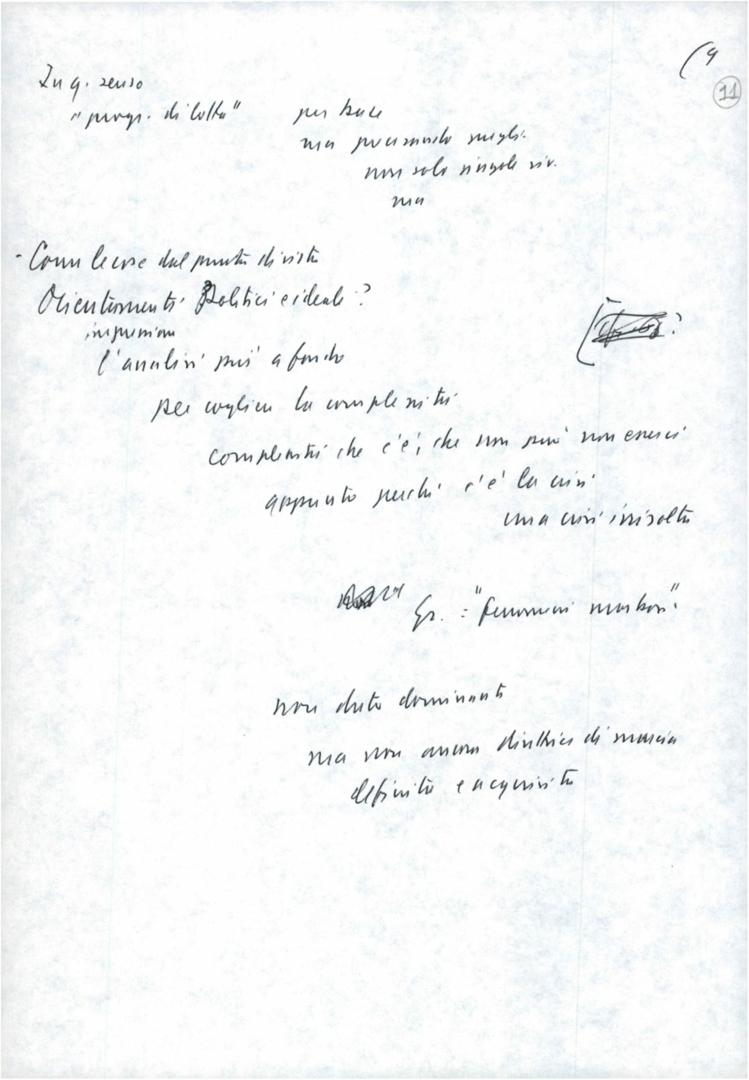 (9
11
In q. senso
"progr. di lotta" per trace
ma precisando meglio
non solo singole riv.
ma
- Come le cose dal punto di vista
Orientamenti Politici e ideali?
impressioni
l'analisi più a fondo
per cogliere la complessità
complessità che c'è, che non può non esserci
appunto perché c'è la crisi
una crisi irrisolta
Gr. : "fenomeni morbosi"
non dato dominante
ma non ancora direttrice di marcia
definita e acquisita